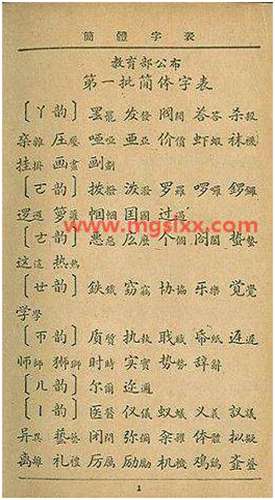 簡體字表
教育部公布
第一批简体字表
〔ㄚ韵〕罢罷 发發 阀閥 荅答 杀殺
杂雜 压壓 哑啞 亚亞 价價 虾蝦 袜襪
挂掛 画畫 划劃
www.mgsixx.com
〔ㄛ韵〕拨撥 泼潑 罗羅 啰囉 锣鑼
逻邏 箩籮 国國 过過
〔ㄜ韵〕恶惡 庅麽 个個 蛰蟄
这這 热熱
〔ㄝ韵〕鉄鐵 窃竊 协協 乐樂 觉覺
学學
〔ㄭ韵〕质質 执執 职職 帋紙 迟遲
师師 狮獅 时時 实實 势勢 辞辭
〔ㄦ韵〕尔爾 迩邇
〔ㄧ韵〕医醫 仪儀 蚁蟻 义義 议議
异異 艺藝 闭閉 弥彌 体體 拟擬
离離 礼禮 厉厲 励勵 机機 鸡鷄
1